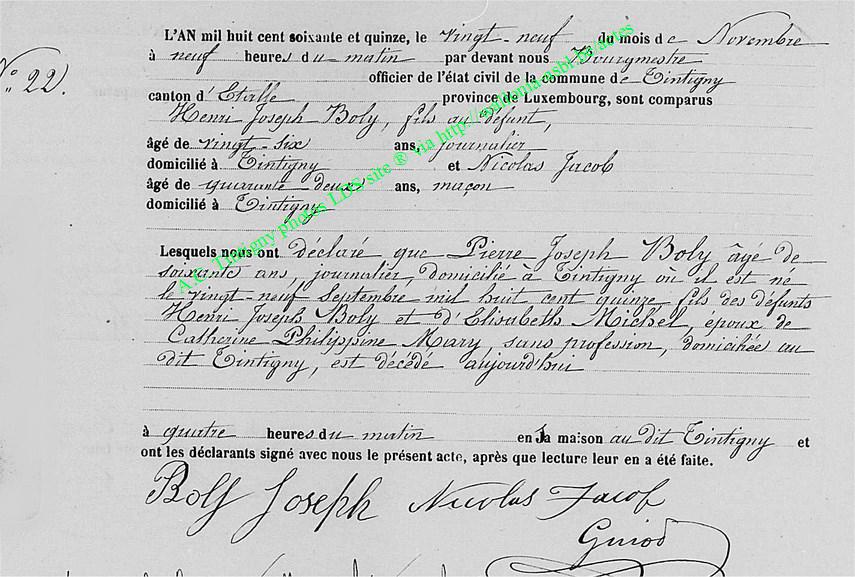 L'AN mil huit cent soixante et quinze, le vingt-neuf du mois de Novembre
à neuf heures du matin par devant nous Bourgmestre
N° 22.
officier de l'état civil de la commune de Tintigny
canton d'Etalle province de Luxembourg, sont comparus
Henri Joseph Boly, fils au défunt,
âgé de vingt-six ans, journalier
domicilié à Tintigny et Nicolas Jacob
âgé de quarante deux ans, maçon
domicilié à Tintigny
Lesquels nous ont déclaré que Pierre Joseph Boly âgé de
soixante ans, journalier, domicilié à Tintigny où il est né
le vingt-neuf Septembre mil huit cent quinze, fils des défunts
Henri Joseph Boly et d'Elisabeth Michel, époux de
Catherine Philippine Mary, sans profession, domiciliée au
dit Tintigny, est décédé aujourd'hui
à quatre heures du matin en la maison au dit Tintigny et
ont les déclarants signé avec nous le présent acte, après que lecture leur en a été faite.
Boly Joseph Nicolas Jacob
Guiod
Tintigny photos LDS site ® via actes